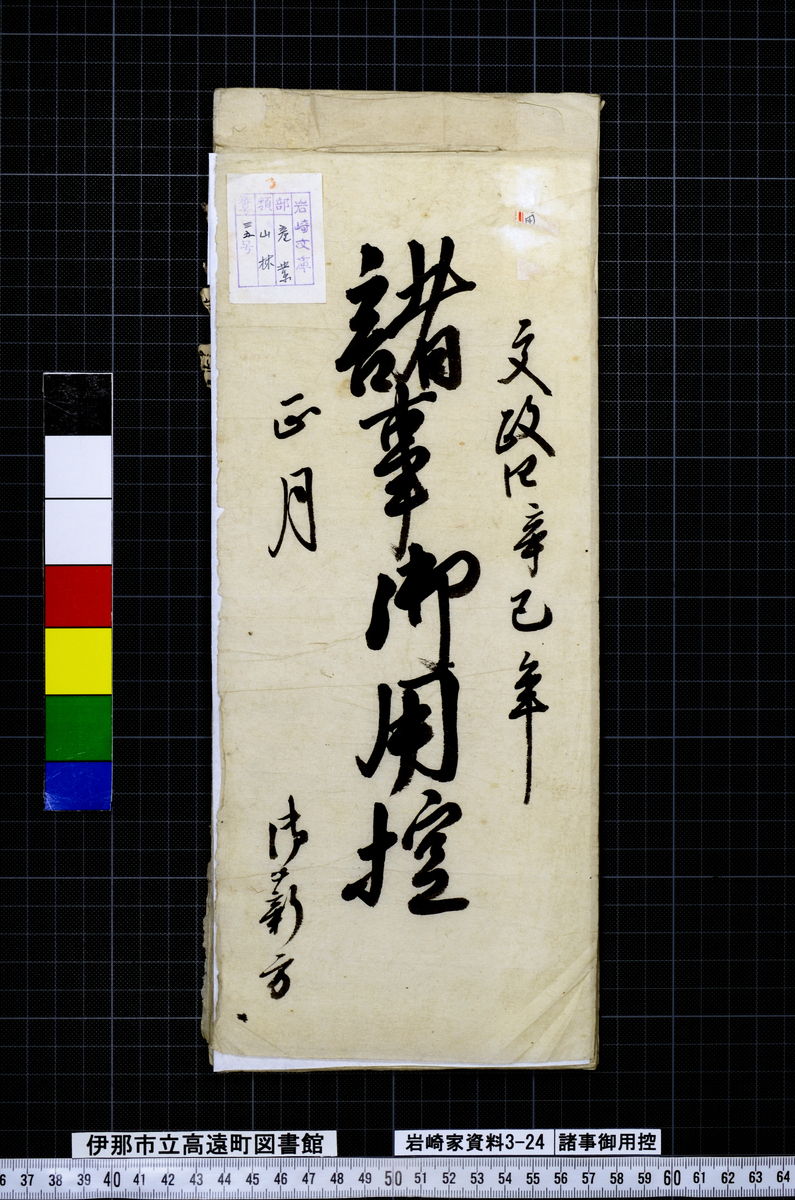 文政四辛巳年
諸事御用控
正月
御薪方
岩崎文庫
部 産業
類 山林
第三五号
用
伊那市立高遠町図書館
岩崎家資料3-24
諸事御用控
6 37 38 39 40 41 42 43 44 45 46 47 48 49 50 51 52 53 54 55 56 57 58 59 60 61 62 63 64